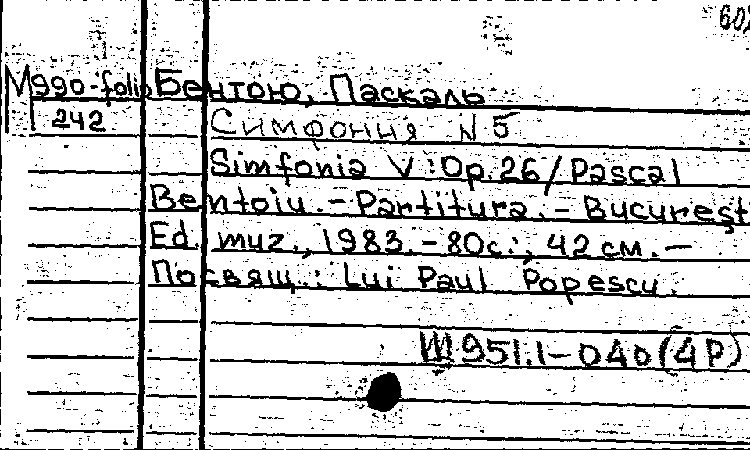 602
М990-folio Бентою, Паскаль
242 Симфония N 5
Simfonia V : Op. 26 / Pascal
Bentoiu. - Partitura. - Bucureşt
Ed. muz., 1983. - 80с.; 42 см. -
Посвящ.: Lui Paul Popescu.
Ш951.1-040(4Р)